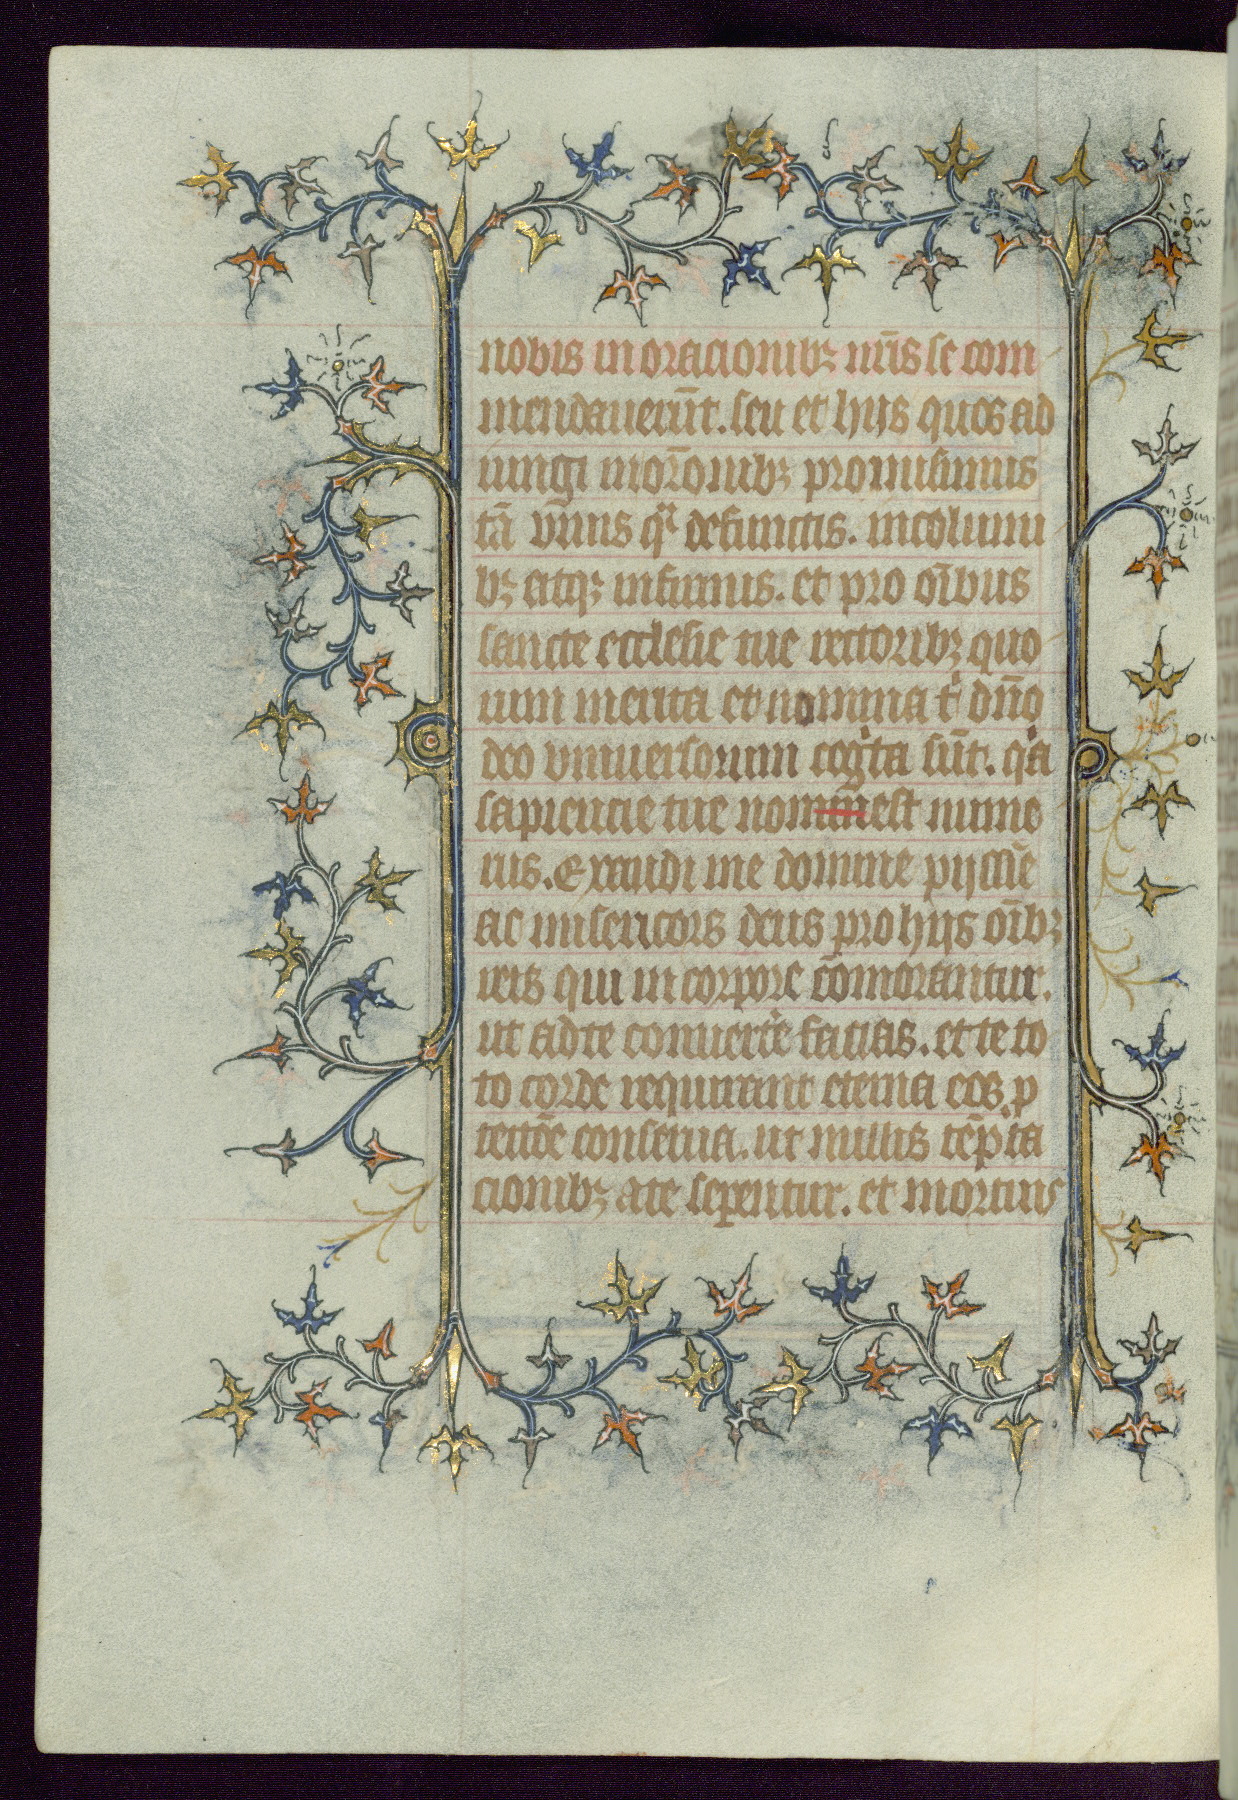 nobis in oracionibꝫ nr̄is se com
mendauerūt. seu et hijs quos ad
iungi in or̄onibꝫ promisimus
tā viuis qͣ defunctis. incolumi
bꝫ atqꝫ infirmis. et pro oībus
sancte ecclesie tue rectoribꝫ quo
rum merita et nomina tⁱ dn̄o
deo vniuersorum cogⁱta sūt. qͥa
sapiencie tue nominēest nume
rus. Exaudi me domine pijssīe
ac misericors deus pro hijs oībꝫ
reis qui in corpore cōmorantur.
ut ad te conuert̄e facias. et te to
to corde requirant eterna eos p
tectōe conserua. ut nullis tēpta
cionibꝫ a te seperentur. et mortuis